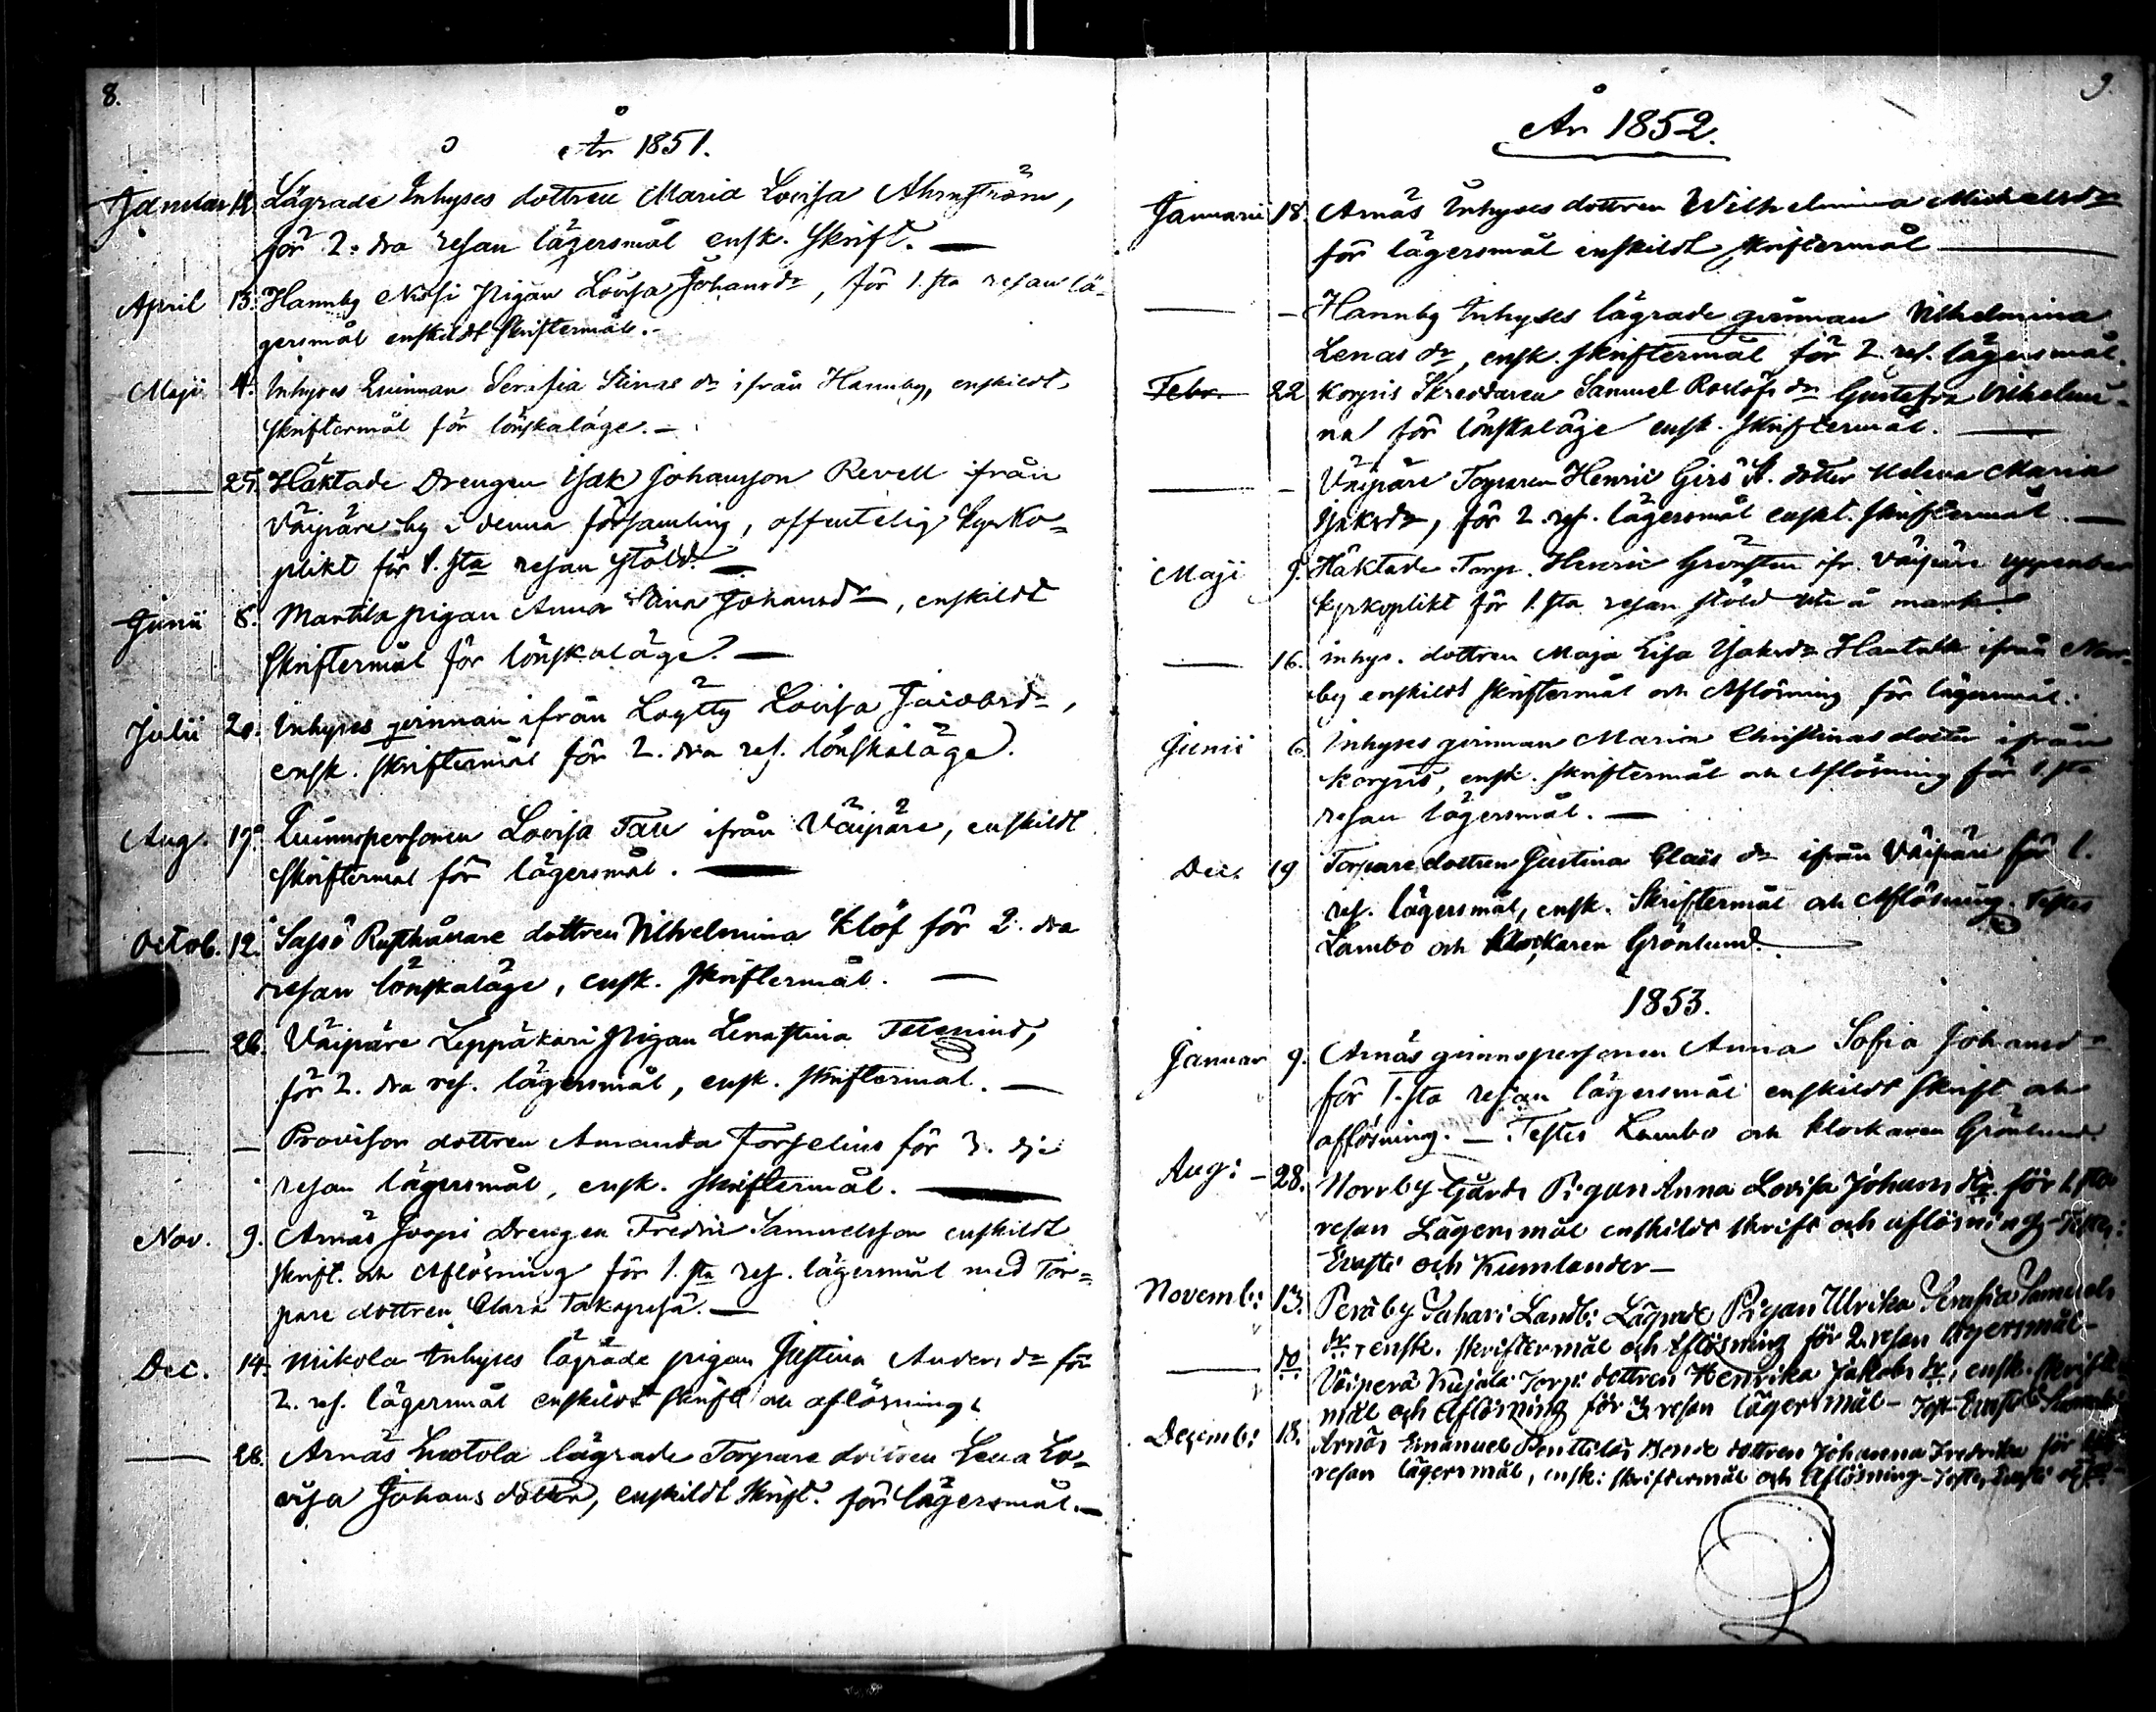 8.
År 1851.
Januar 12. Lägrade Inhyses dottren Maria Lovisa Ahrnström,
för 2:dra resan lägersmål ensk. Skrift. —
April 13. Hannby Nissi pigan Lovisa Johansdr, för 1.sta resan lä-
gersmål enskildt Skriftermål. -
Maji 4. Inhyses Quinnan Serafia Stinas dr ifrån Hannby, enskildt
Skriftermål för lönskaläge. -
— 25. Häktade Drengen Isak Johansson Revell ifrån
Väipäre by i denna församling, offentelig kyrko=
plikt för 1.sta resan stöld. —
Junii 8. Martila pigan Anna Stina Johansdr, enskildt
Skriftermål för lönskaläge. —
Julii 20. Inhyses qvinnan ifrån Loytty Lovisa Jacobsdr,
ensk. skriftermål för 2.dra res. lönskaläge.
Aug. 17. Quinnspersonen Lovisa Tau ifrån Väipäre, enskildt
Skriftermål för lägersmål. —
Octob. 12. Sassö Rusthållare dottren Vilhelmina Klöf för 2.dra
resan lönskaläge, ensk. Skriftermål. —
— 26. Väipäre Leppäkari pigan Lenastina
för 2.dra res. lägersmål, ensk. skriftermål. —
— — Provisor dottren Amanda Forselius för 3.dje
resan lägersmål, ensk. skriftermål. —
Nov. 9. Arnäs Jorpi Drengen Fredric Samuelsson enskildt
skrift. och Aflösning för 1.sta res. lägersmål med Tor=
pare dottren Clara —
Dec. 14. Nikola Inhyses lägrade pigan Justina Anders dr för
2. res. lägersmål enskildt skrift och aflösning.
— 26. Arnäs lägrade Torpare dottren Lena Lo-
visa Johans dotter, enskildt Skrift. för lägersmål. —
9.
År 1852.
Januarii 18. Arnäs Inhyses dottren Wilhelmina Michelsdr
för lägersmål enskildt skriftermål —
— - Hannby Inhyses lägrade qvinnan Vilhelmina
Lenas dr, ensk. skriftermål för 2. res. lägersmål.
Febr. 22 Korpis Skreddaren Samuel dr Gustafva Vilhelmi-
na för lönskaläge ensk. Skriftermål. —
— - Väipäre Torparen Henric Girs St. dotter Helena Maria
Isaksdr, för 2. res. lägersmål enskt. skriftermål. —
Maji 9. Häktade Torp. Henric Grönsten ifr. Väipäre uppenbar
kyrkoplikt för 1.sta resan stöld ute å mark.
— 16. Inhys. dottren Maja Lisa Isaksdr ifrån Norr-
by enskildt skriftermål och Aflösning för lägersmål.
Junii 6. Inhyses qvinnan Maria Christinas dotter ifrån
Korpis, ensk. skriftermål och Aflösning för 1.sta
resan lägersmål. —
Dec. 19 Torpare dottren Justina Claës dr ifrån Väipäre för 1.
res. lägersmål, ensk. Skriftermål och Aflösning. Testes
Lambo och klockaren Grönlund. —
1853.
Januar 9. Arnäs qvinnspersonen Anna Sofia Johansd
för 1.sta resan lägersmål enskildt skrift och
aflösning. — Testes Lambo och klockaren Grönlund.
Aug: - 28. Norrby Gårds Pigan Anna Lovisa Johans dr för 1.sta
resan Lägersmål enskildt skrift och aflösning - Testes:
och Kumlander —
Novemb: 13. Peräby Sahari Landb: Lägrade Pigan Ulrika Serafia Samuels
dr, ensk. skriftermål och Aflösning för 2. resan lägersmål -
— do Väiperä Kujala Torp: dottren Henrika Jakobs dr, ensk. skrifter-
mål och Aflösning för 3. resan lägersmål -
Dezemb: 18. Arnäs Emanuel Penttiläs dottren Johanna Fredrika för
resan lägersmål, ensk: skriftermål och Aflösning -